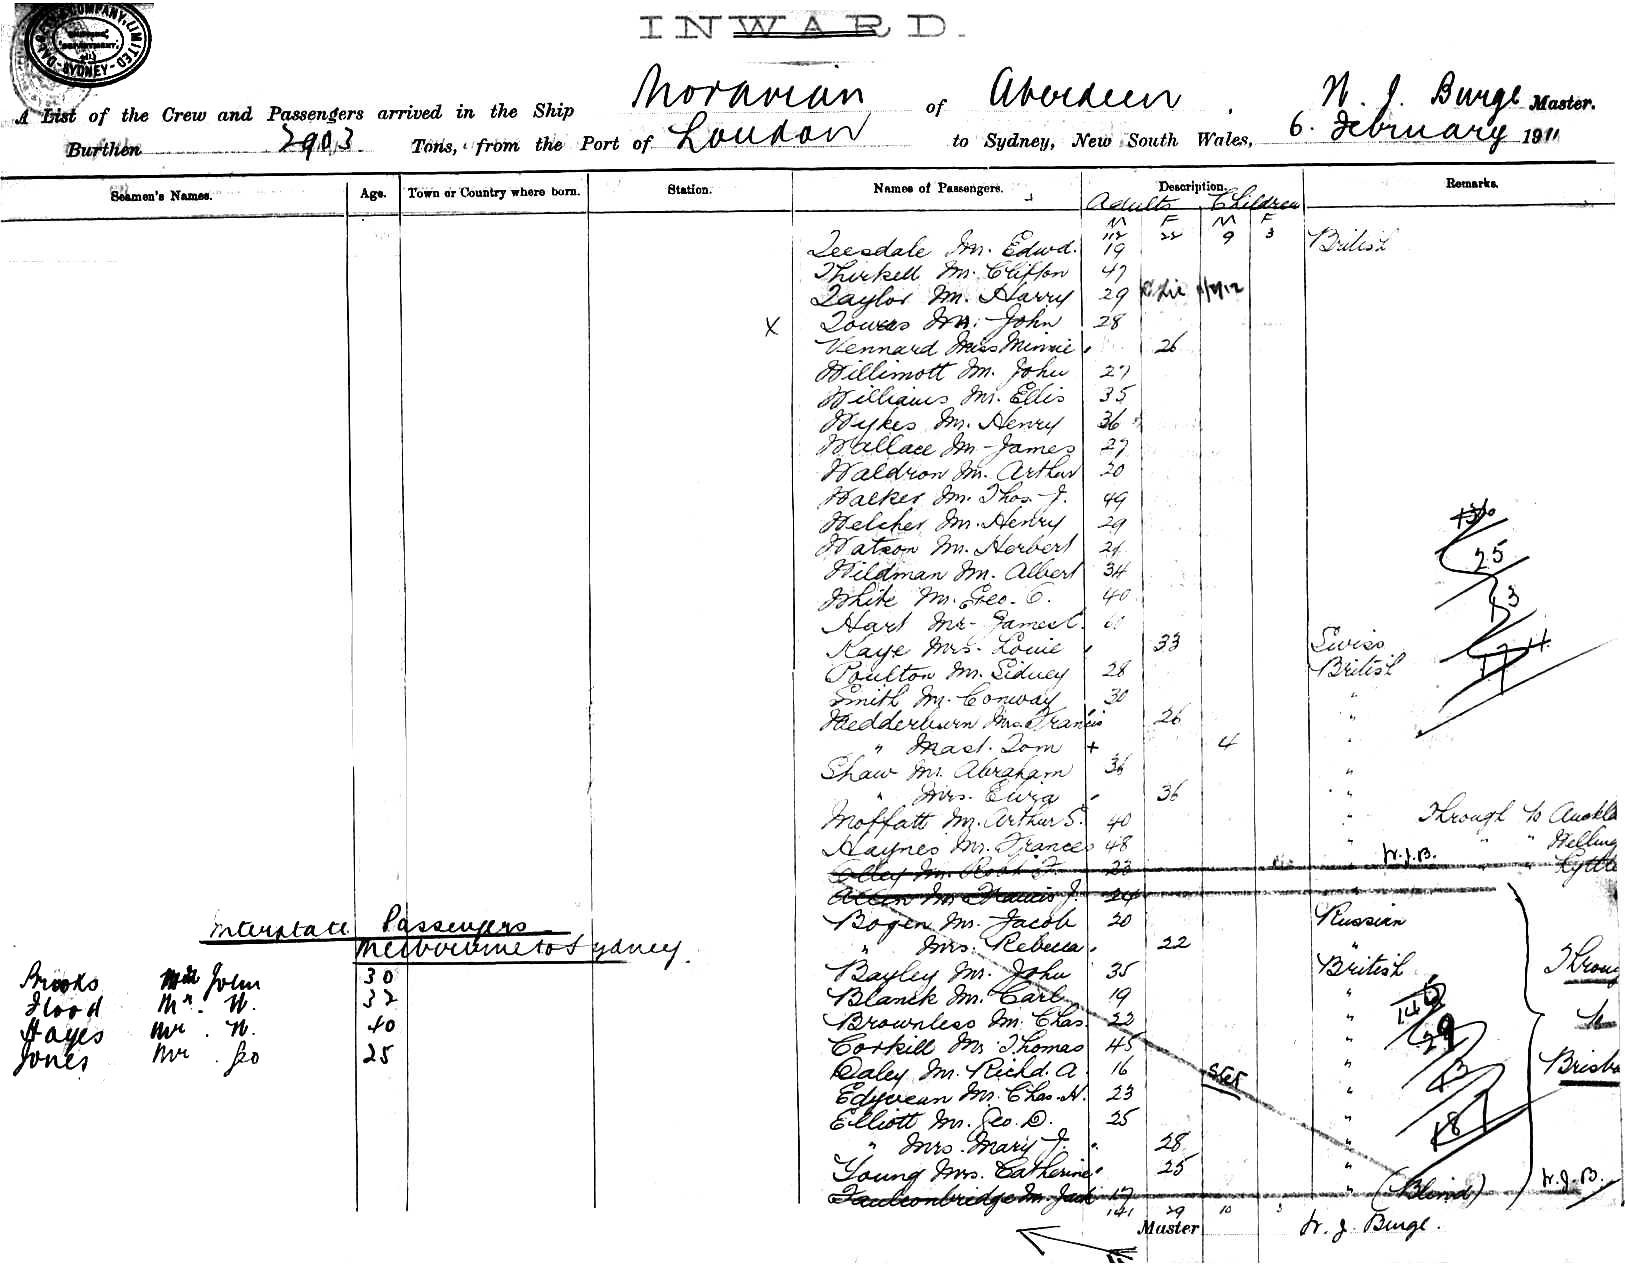 DALGETY & COMPANY, LIMITED
SHIPPING DEPARTMENT
SYDNEY
INWARD.
A List of the Crew and Passengers arrived in the Ship Moravian of Aberdeen, W. J. Burge Master.
Burthen 2903 Tons, from the Port of London to Sydney, New South Wales, 6. February 1911
Seamen's Names. Age. Town or Country where born. Station. Names of Passengers. Description. Remarks.
Adults Children
M F M F
112 22 9 3
Teesdale Mr. Edwd. 19 British
Thirkell Mr. Clifton 47
Taylor Mr. Harry 29
X Towers Mr. John 28
Vennard Miss Minnie 26
Willimott Mr. John 27
Williams Mr. Ellis 35
Wykes Mr. Henry 36
Wallace Mr. James 27
Waldron Mr. Arthur 20
Walker Mr. Thos. J. 49
Welcher Mr. Henry 29
Watson Mr. Herbert 21
Wildman Mr. Albert 34
White Mr. Geo. C. 40
Hart Mr. James C.
Kaye Mrs. Louie 33 Swiss
Poulton Mr. Sidney 28 British
Smith Mr. Conway 30 "
Wedderburn Mrs. Francis 26 "
" Mast. Tom + 4 "
Shaw Mr. Abraham 36 "
" Mrs. 36 "
Moffatt Mr. Arthur S. 40 " Through to Auckla
Haynes Mr. Frances 48 " W.J.B. " " Welling
Olley Mr. Robt. F. 23 " Lytte
Allen Mr. Francis J. 24 "
Bogen Mr. Jacob 20 Russian
" Mrs. Rebecca 22 "
Bayley Mr. John 35 British Throug
Blanck Mr. Carl 19 "
Brownless Mr. Chas. 22 " to
Corkill Mr. Thomas 45 "
Daley Mr. Richd. A. 16 stet " Brisba
Edyvean Mr. Chas. H. 23 "
Elliott Mr. Geo. D. 25 "
" Mrs. Mary J. 28 "
Young Mrs. Catherine 25 "
Faulconbridge Mr. Jack 17 " (Blind) W.J.B.
141 29 10 3
Master W. J. Burge.
Interstate Passengers
Melbourne to Sydney.
Brooks Mr John 30
Flood Mr. W. 32
Hayes Mr. W. 40
Jones Mr. Geo 25
25
13
174
29
13
187